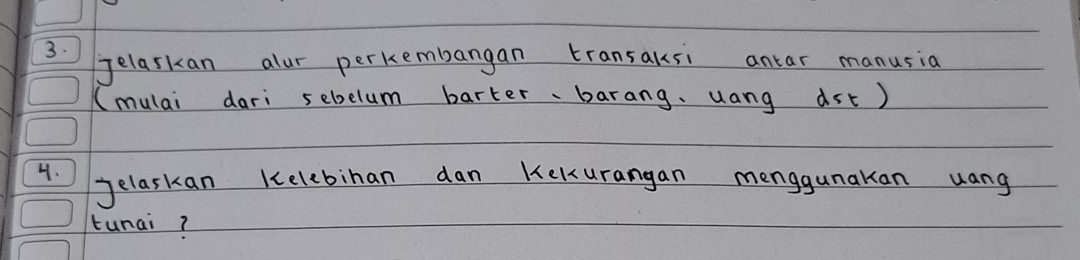 3. Jelaskan alur perkembangan transaksi antar manusia
(mulai dari sebelum barter, barang, uang dst)
4. Jelaskan Kelebihan dan Kekurangan menggunakan uang
tunai ?